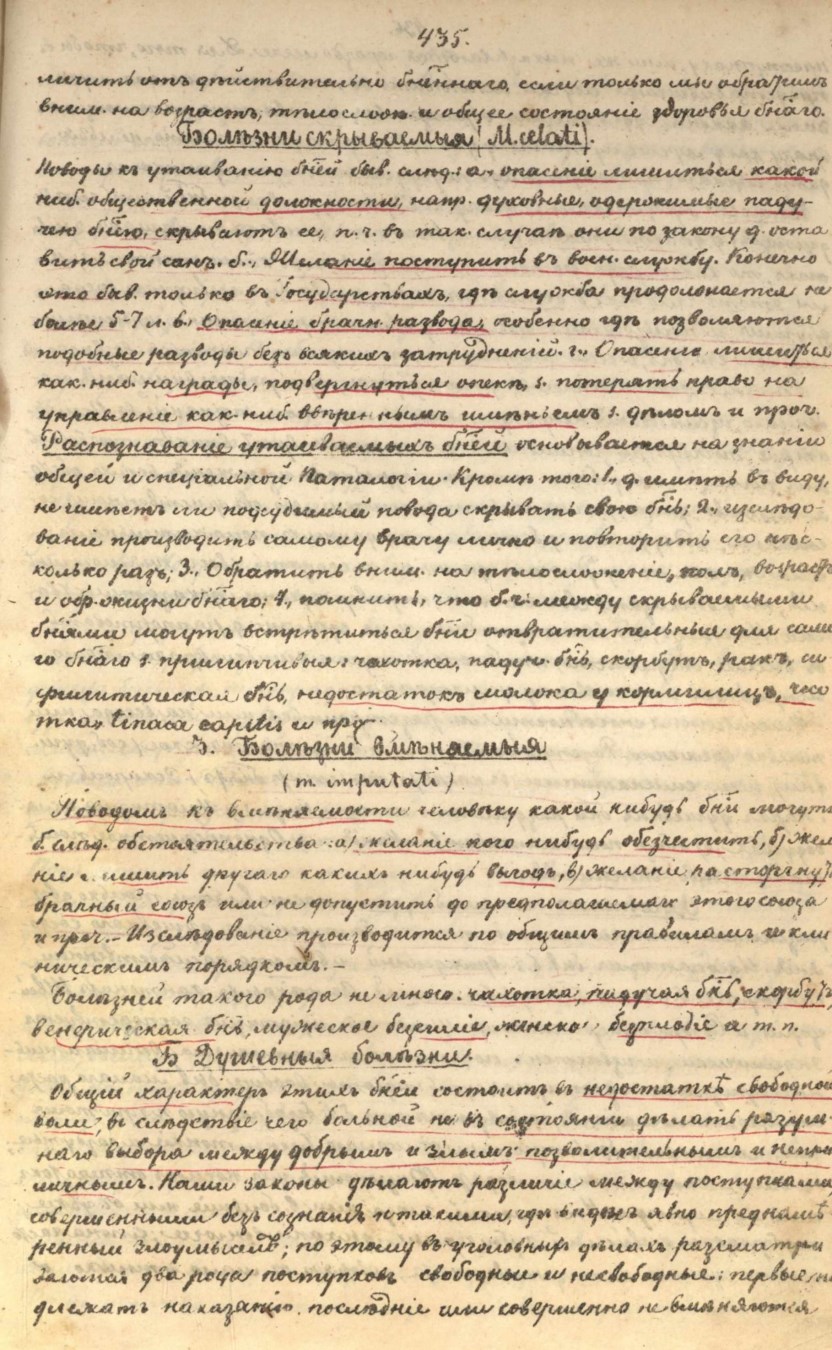 435.
личить отъ дѣйствительно бн̃наго, если только мы обратимъ
вним. на возрастъ, тѣлослож. и общее состояніе здоровья бн̃аго.
Болѣзни скрываемыя (M. celati).
Поводы къ утаиванію бн̃ей быв. слѣд.: а., опасеніе лишиться какой
ниб. общественной должности, напр. духовные, одержимые паду-
чею бн̃ію, скрываютъ ее, п. ч. въ так. случаѣ они по закону д. оста
вить свой санъ. б., Желаніе поступить въ воен. службу. Конечно
это быв. только въ Государствахъ, гдѣ служба продолжается не
болѣе 5-7 л. в. Опасеніе брачн. развода, особенно гдѣ позволяются
подобные разводы безъ всякихъ затрудненій. г., Опасеніе лишиться
как. ниб. награды, подвергнуться опекѣ, s. потерять право на
управленіе как. ниб. ввѣреннымъ имѣніемъ s. дѣломъ и проч.
Распознаваніе утаиваемыхъ бн̃ей основывается на знаніи
общей и спеціальной Паталогіи. Кромѣ того: 1., д. имѣть въ виду,
не имѣетъ ли подсудимый повода скрывать свою бн̃ь; 2., изслѣдо-
ваніе производить самому врачу лично и повторить его нѣс-
колько разъ; 3., Обратить вним. на тѣлосложеніе, полъ, возрастъ
и обр. жизни бн̃аго; 4., помнить, что б. ч. между скрываемыми
бн̃ями могутъ встрѣтиться бн̃и отвратительные для сами
го бн̃аго s. прилипчивыя: чахотка, падуч. бн̃ь, скорбутъ, ракъ, си
филитическая бн̃ь, недостатокъ молока у кормилицъ, чесо
тка, tinaea capitis и пр.
3. Болѣзни вмѣняемыя
(m. imputati)
Поводомъ къ вмѣняемости человѣку какой нибудь бн̃и могутъ
б. слѣд. обстоятельства: а) желаніе кого нибудь обезчестить, б) жела
ніе лишить другаго какихъ нибудь выгодъ, в) желаніе расторгнуть
брачный союзъ или не допустить до предполагаемаго этого союза
и проч. – Изслѣдованіе производится по общимъ правиламъ и кли
ническимъ порядкомъ. –
Болѣзней такого рода не много. чахотка, падучая бн̃ь, скорбутъ,
венерическая бн̃ь, мужеское безсиліе, женское безплодіе и т. п.
Б Душевныя болѣзни.
Общій характеръ этихъ бн̃ей состоитъ въ недостаткѣ свободной
воли, въ слѣдствіе чего больной не въ состояніи дѣлать разум-
наго выбора между добрымъ и злымъ, позволительнымъ и непри
личнымъ. Наши законы дѣлаютъ различіе между поступками,
совершенными безъ сознанія и такими, гдѣ виденъ явно преднамѣ
ренный злоумыселъ; по этому въ уголовныхъ дѣлахъ разсматри
ваются два рода поступковъ свободные и несвободные: первые на
длежатъ наказанію, послѣдніе или совершенно не вмѣняются